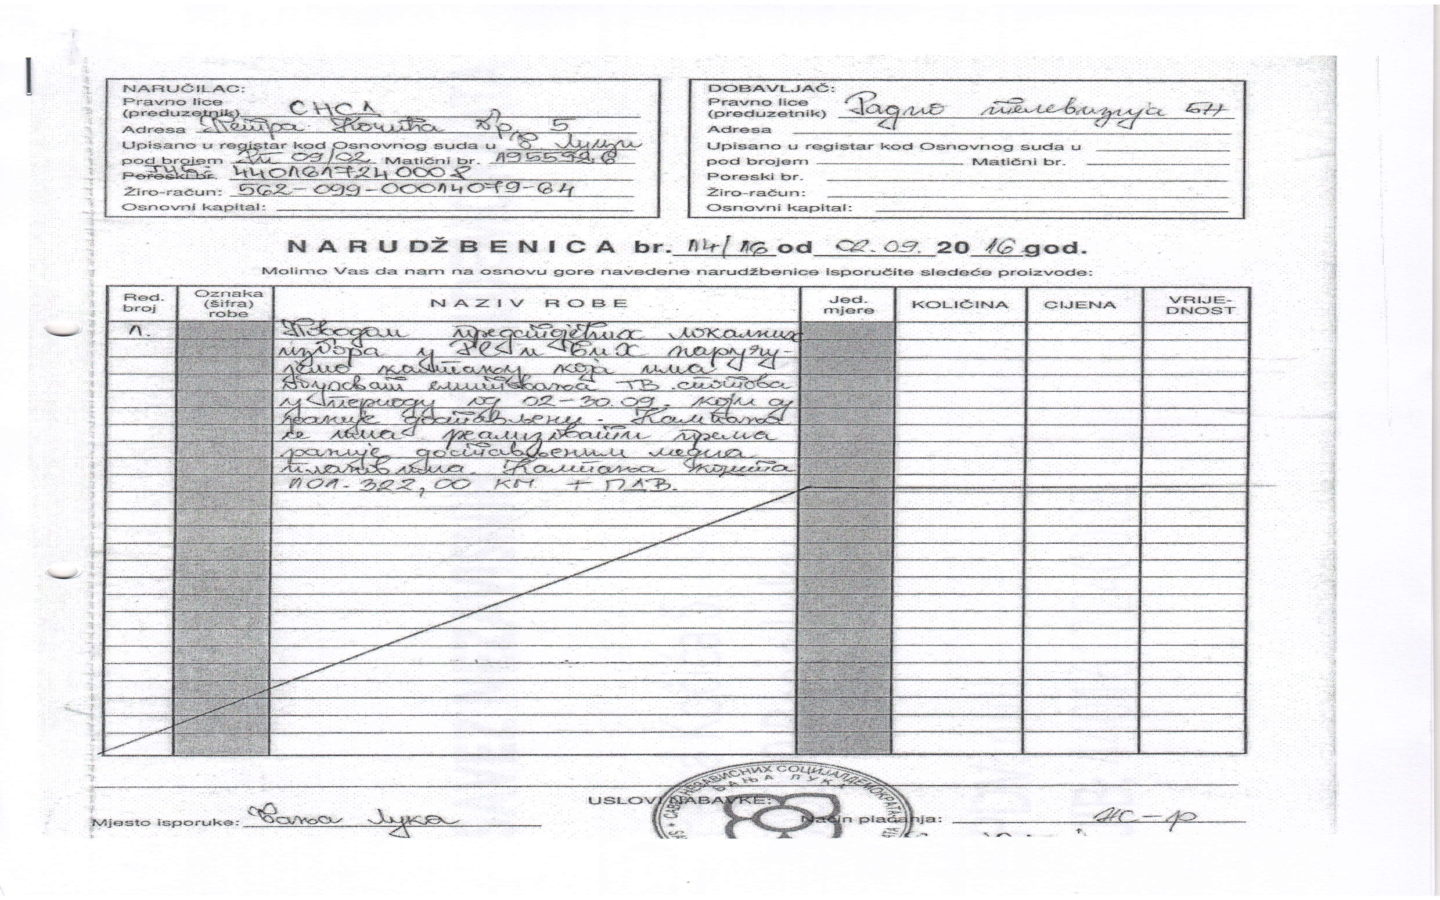 NARUČILAC:
Pravno lice
(preduzetnik) СНСД
Adresa Петра Кочића бр. 5
Upisano u registar kod Osnovnog suda u Б Луци
pod brojem 09/02 Matični br. 1955926
Poreski br. 4401617240008
Žiro-račun: 562-099-00014079-64
Osnovni kapital:
DOBAVLJAČ:
Pravno lice
(preduzetnik) Радио телевизија БН
Adresa
Upisano u registar kod Osnovnog suda u
pod brojem Matični br.
Poreski br.
Žiro-račun:
Osnovni kapital:
NARUDŽBENICA br. 14/16 od 02.09. 2016 god.
Molimo Vas da nam na osnovu gore navedene narudžbenice isporučite sledeće proizvode:
Red. broj
Oznaka (šifra) robe
NAZIV ROBE
Jed. mjere
KOLIČINA
CIJENA
VRIJE-DNOST
1. Поводом предстојећих локалних
избора у РС и БиХ наручу-
јемо кампању која има
емитовања ТВ спотова
у периоду од 02-30.09. који су
раније достављени. Кампања
се има реализовати према
раније достављеним медиа
плановима. Кампања кошта
101.322,00 КМ + ПДВ.
САВЕЗ НЕЗАВИСНИХ СОЦИЈАЛДЕМОКРАТА
БАЊА ЛУКА
USLOVI NABAVKE:
Mjesto isporuke: Бања Лука
Način plaćanja: Ж-р